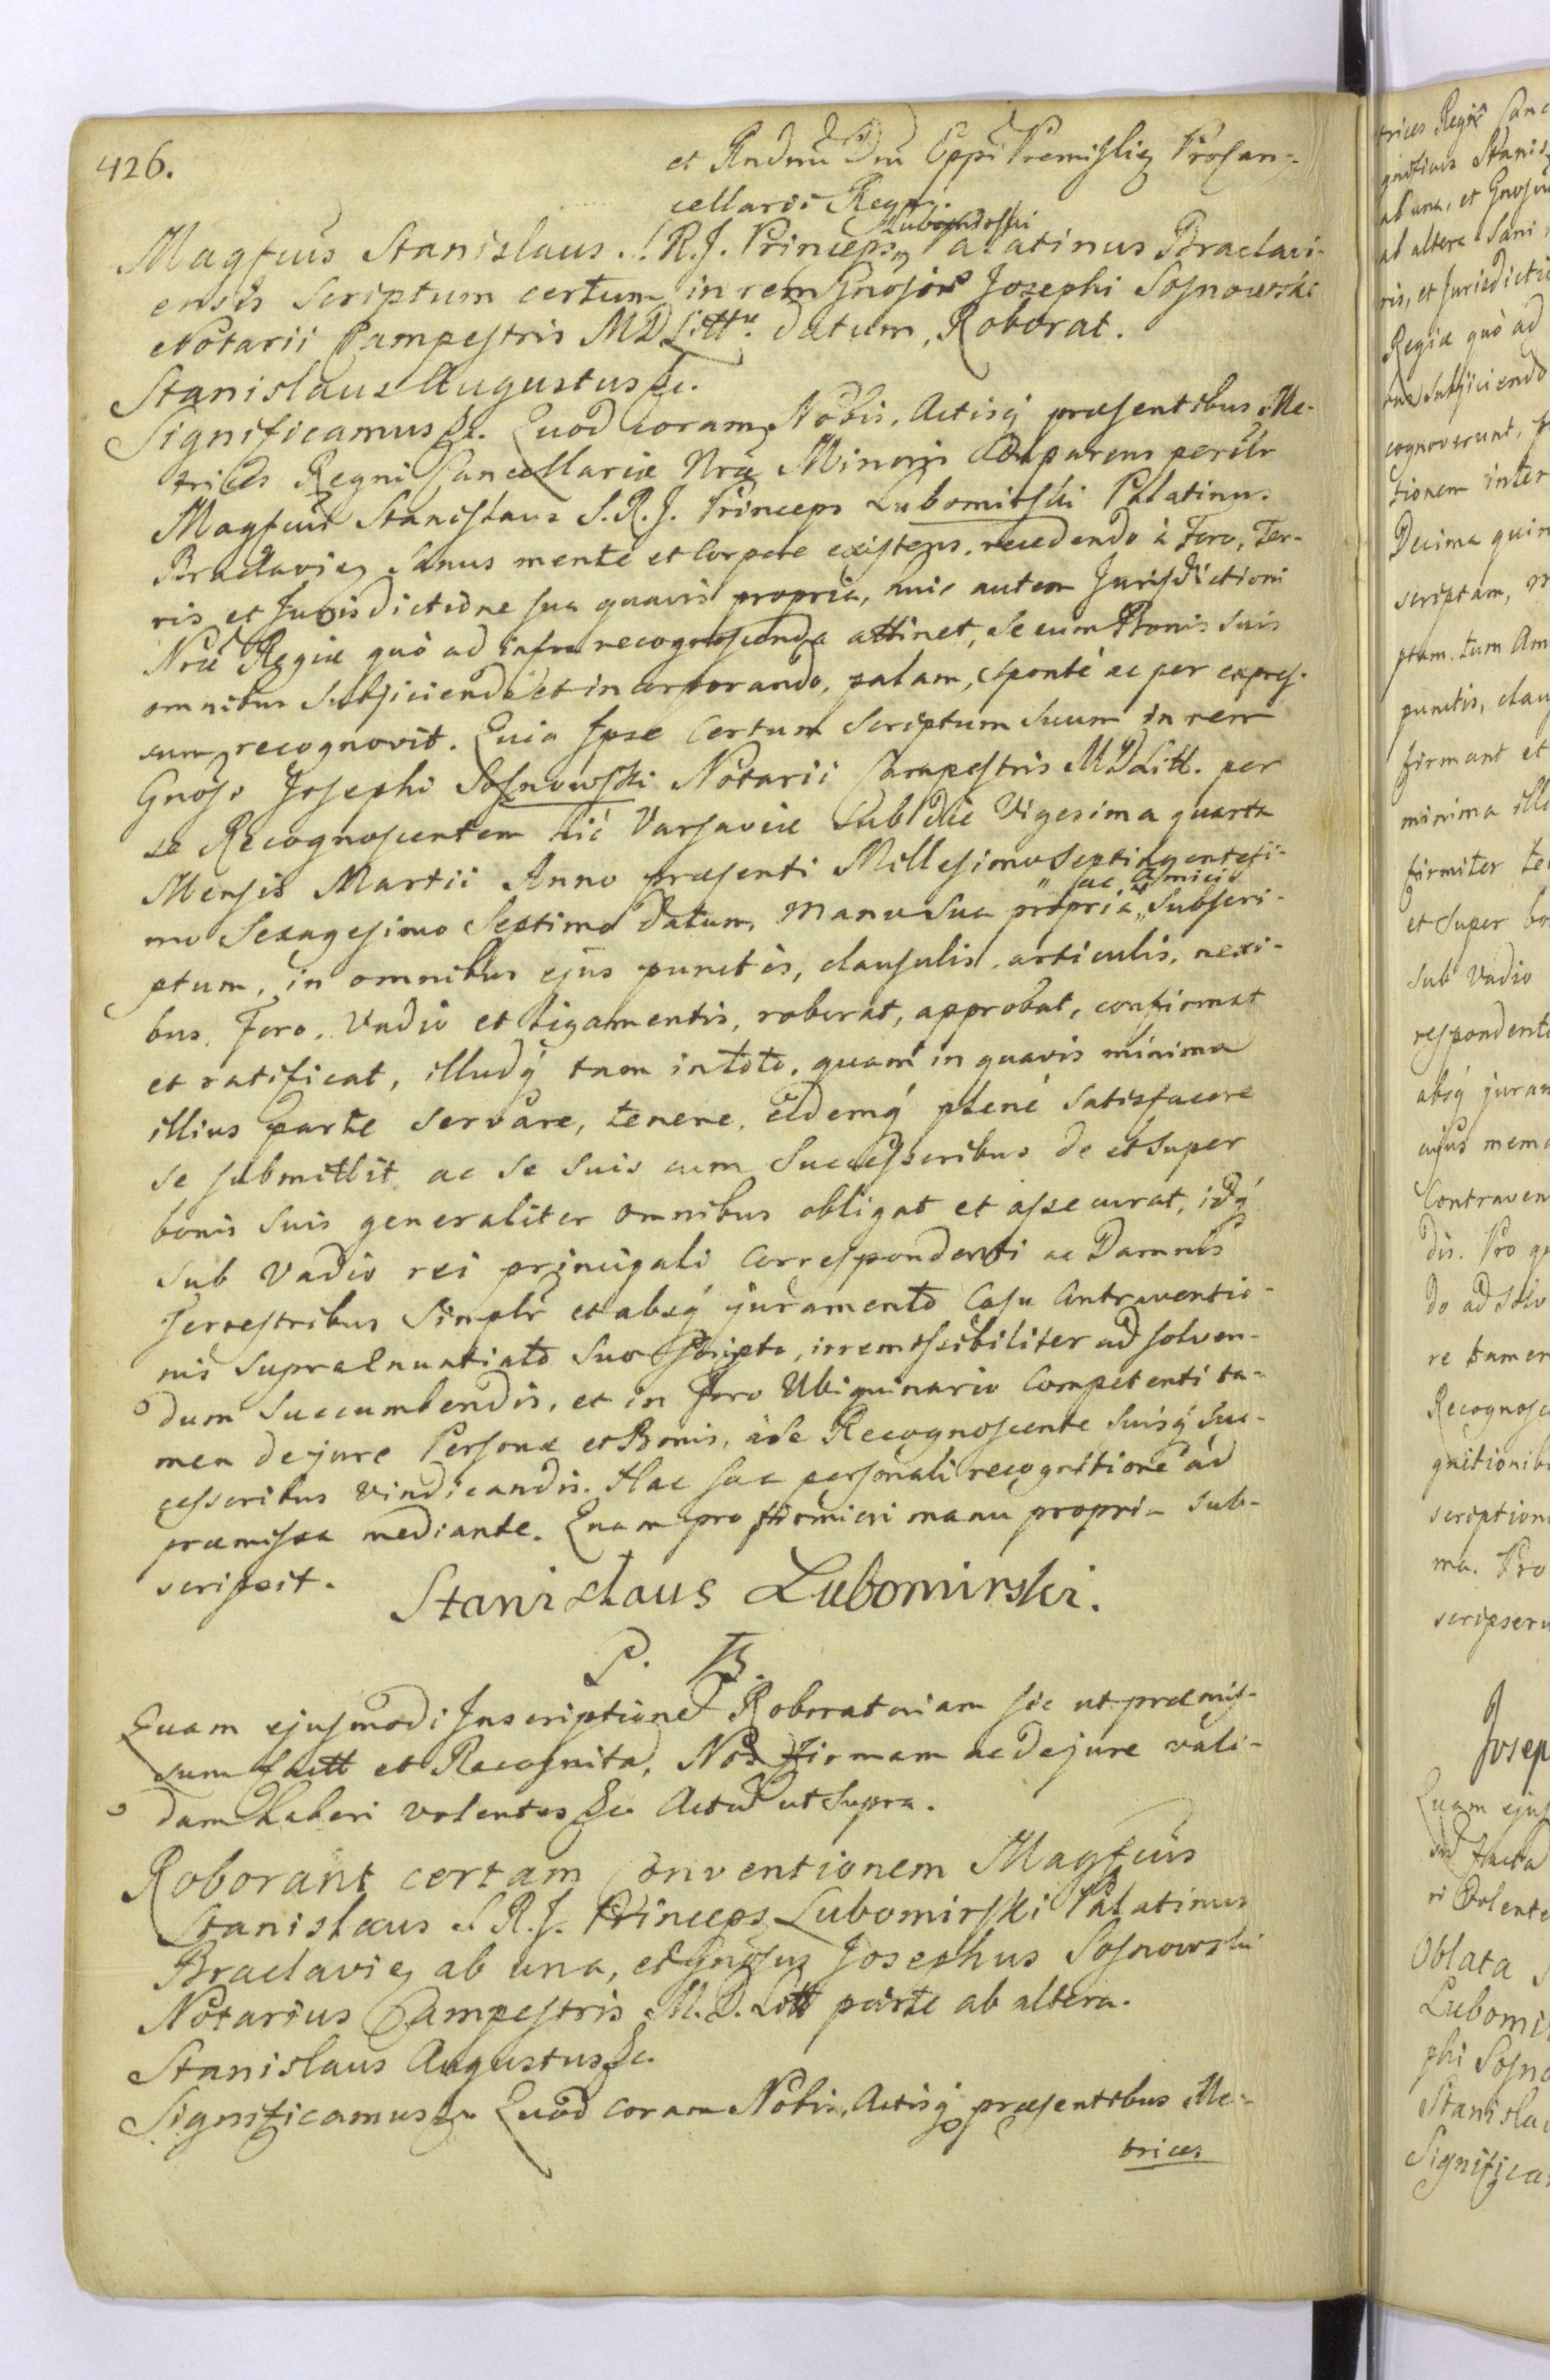 426.
et Rndnũ Dnĩ Eppĩ Premisliẹ Procan-
cellarii Regni.
Lubomirski
Magfcus Stanislaus S. R. J. Princeps Palatinus Braclavi-
ensis Scriptum certum in rem Gnosi Josephi Sosnowski
Notarii Campestris MD Littu. datum, Roborat.
Stanislaus Augustus &c.
Significamus &c. Quod coram Nobis, Actisq́ præsentibus Me-
trices Regni Cancellariæ Nræ Minoris Comparens persr
Magfcus Stanislaus S. R. J. Princeps Lubomirski Palatinus
Braclavię Sanus mente et Corpore existens, recedendo à Foro, Ter-
ris et Jurisdictione sua quavis propria, huic autem Jurisdictioni
Nræ Regiæ quò ad infra recognoscenda attinet, se cum Bonis Suis
omnibus Subjiciendo et incorporando, palam, sponte ac per expres-
sum recognovit. Quia Ipse Certum Scriptum Suum in rem
Gnosi Josephi Sosnowski Notarii Campestris MD Litt. per
se Recognoscentem hic Varsaviæ Sub die Vigesima quarta
Mensis Martii Anno præsenti Millesimo Septingentesi-
ac Amici
mo Sexagesimo Septimo Datum, manu Sua propria „ Subscri-
ptum, in omnibus ejus punctis, clausulis, articulis, nexi-
bus, Foro, Vadio et ligamentis, roborat, approbat, confirmat
et ratificat, illudq́ tam in toto, quam in quavis minima
illius parte servare, tenere, eidemq́ plene satisfacere
se submittit ac se suis cum Successoribus de et super
bonis suis generaliter omnibus obligat et assecurat, idq́
Sub Vadio rei principali Correspondenti ac Damnis
Terrestribus Simplr et absq́ juramento Casu Contraventio-
nis supraenuntiato Suo Scripto, irremissibiliter ad solven-
dum Succumbendis, et in Foro Ubiquinario Competenti ta-
men de jure Personæ et Bonis, à se Recognoscente Suisq́ Suc-
cessoribus vindicandis. Hac Sua personali recognitione ad
præmissa mediante. Quam pro firmiori manu propria sub-
scripsit.
Stanislaus Lubomirski.
P. B.
Quam ejusmodi Inscriptione Roboratoriam sic ut præmis-
sum factt et Recognita, Nos firmam ac de jure vali-
dam haberi volentes &c. Actu ut Supra.
Roborant certam Conventionem Magfcus
Stanislaus S R. J. Princeps Lubomirski Palatinus
Braclavię ab una, et Gnosus Josephus Sosnowski
Notarius Campestris M. D. Litt parte ab altera.
Stanislaus Augustus &c.
Significamus &c. Quod coram Nobis, Actisq́ præsentibus Me-
trices
trices Regni Canc
Stanis
ab una, et Gnosu
ab altera Sani
ris, et Jurisdictio
Regiæ quò ad
Subjiciendo
cognoverunt,
tionem inter
Decima quin
scriptam,
ptam, tum Am
punctis, clau
firmant et
minima illi
firmiter te
et super bo
Sub Vadio
respondenti
absq́ juram
cujus mem
Contraven
dis. Pro
do ad solv
re tamen
Recognosc
gnitionib
scription
ma. Pro
scripseru
Josep
Quam ejus
facta
ri volente
Oblata
Lubomi
phi Sosno
Stanisla
Significa